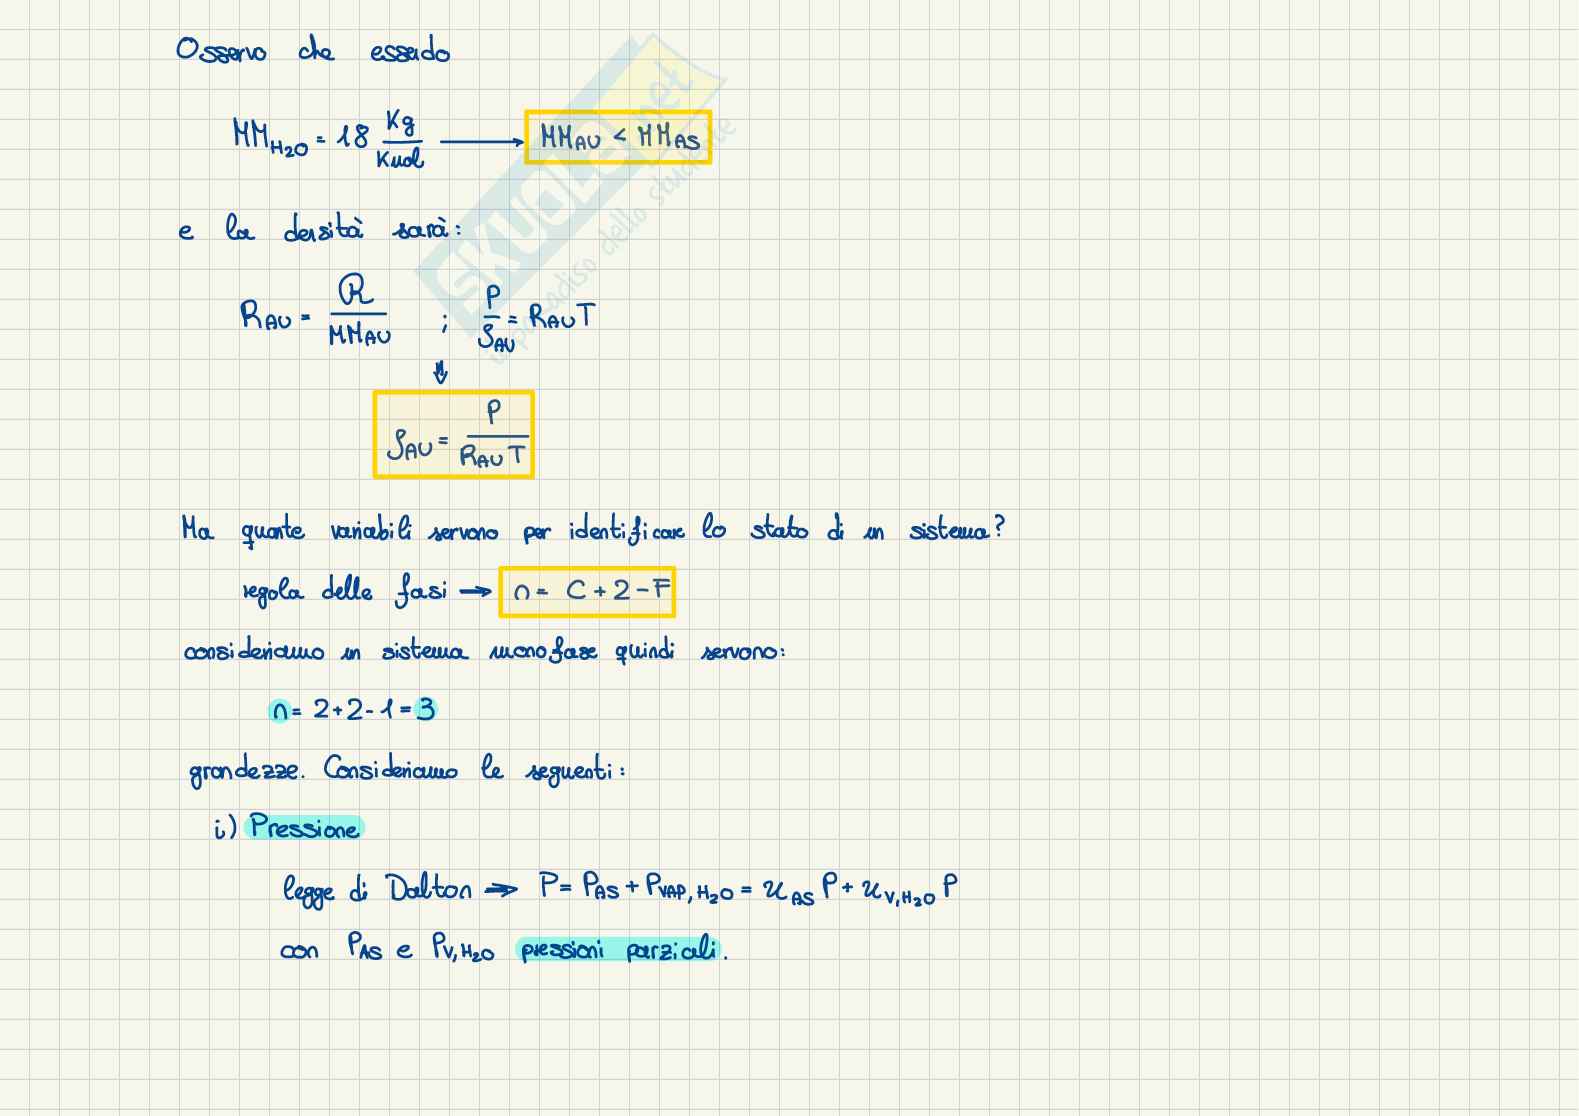 Osservo che essendo
MM_H2O = 18 Kg/Kmol → MM_AU < MM_AS
e la densità sarà:
R_AU = R/MM_AU ; P/ρ_AU = R_AU T
⇓
ρ_AU = P/(R_AU T)
Ma quante variabili servono per identificare lo stato di un sistema?
regola delle fasi → n = C + 2 - F
consideriamo un sistema monofase quindi servono:
n = 2 + 2 - 1 = 3
grandezze. Consideriamo le seguenti:
i) Pressione
legge di Dalton → P = P_AS + P_VAP,H2O = x_AS P + x_V,H2O P
con P_AS e P_V,H2O pressioni parziali.
SKUOLA.net
il paradiso dello studente